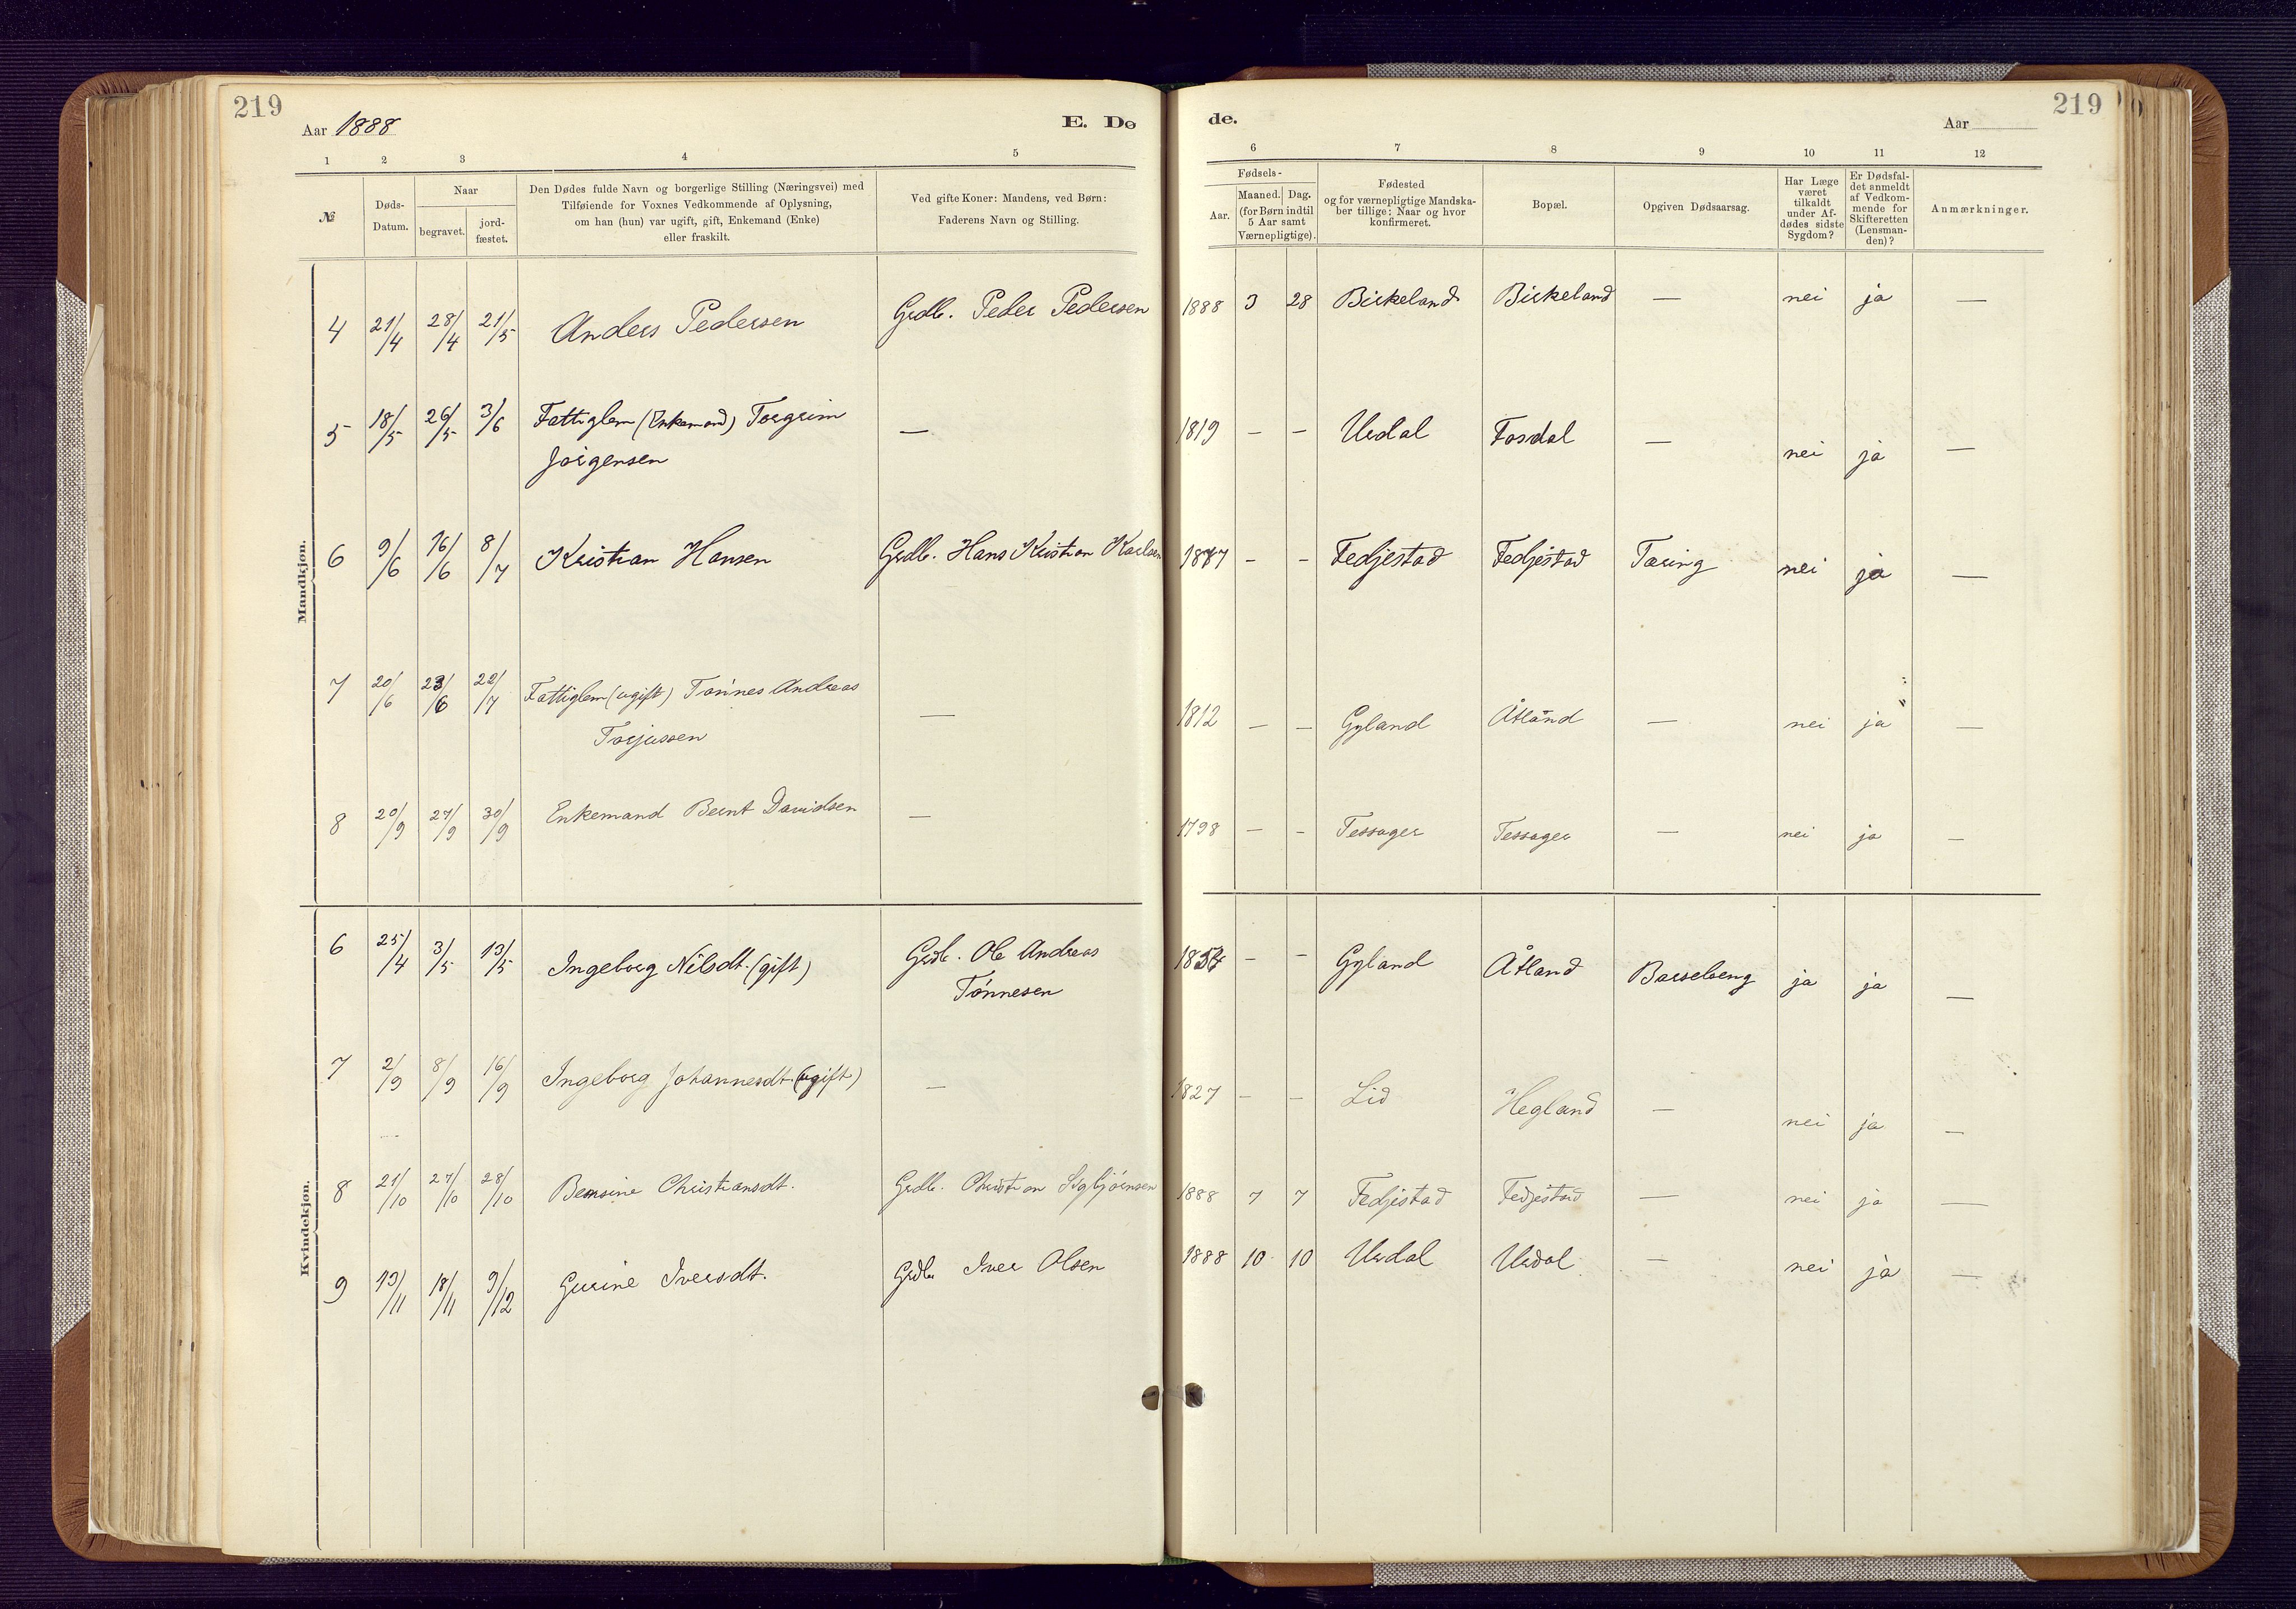 219
Aar 1888
E. Dø
de.
Aar
219
1 2 3 4 5 6 7 8 9 10 11 12
№
Døds-
Datum.
Naar
begravet.
jord-
fæstet.
Den Dødes fulde Navn og borgerlige Stilling (Næringsvei) med
Tilføiende for Voxnes Vedkommende af Oplysning,
om han (hun) var ugift, gift, Enkemand (Enke)
eller fraskilt.
Ved gifte Koner: Mandens, ved Børn:
Faderens Navn og Stilling.
Fødsels-
Aar.
Maaned. Dag.
(for Børn indtil
5 Aar samt
Værnepligtige).
Fødested
og for værnepligtige Mandska-
ber tillige: Naar og hvor
konfirmeret.
Bopæl.
Opgiven Dødsaarsag.
Har Læge
været
tilkaldt
under Af-
dødes sidste
Sygdom?
Er Dødsfal-
det anmeldt
af Vedkom-
mende for
Skifteretten
(Lensman-
den)?
Anmærkninger.
Mandkjøn.
4 21/4 28/4 21/5 Anders Pedersen Grdb. Peder Pedersen 1888 3 28 Birkeland Birkeland — nei ja —
5 18/5 26/5 3/6 Fattiglem (Enkemand) Torgrim — 1819 — — Urdal Fosdal — nei ja —
Jørgensen
6 9/6 16/6 8/7 Kristian Hansen Grdb. Hans Kristian Karlsen - - Fedjestad Fedjestad Tæring nei ja —
7 20/6 23/6 22/7 Fattiglem (ugift) Tønnes Andreas — 1812 — — Gyland Åtland — nei ja —
Torjussen
8 20/9 27/9 30/9 Enkemand Bernt Davidsen — 1798 — - Tessager Tessager — nei ja —
Kvindekjøn.
6 25/4 3/5 13/5 Ingeborg Nilsdt. (gift) Grdb. Ole Andreas - - Gyland Åtland Barselseng ja ja —
Tønnesen
7 2/9 8/9 16/9 Ingeborg Johannesdt. (ugift) — 1827 — — Lid Hegland — nei ja —
8 21/10 27/10 28/10 Bensine Christiansdt. Grdb. Christian Sigbjørnsen 1888 7 7 Fedjestad Fedjestad — nei ja —
9 13/11 18/11 9/12 Gurine Iversdt. Grdb. Iver Olsen 1888 10 10 Urdal Urdal — nei ja —